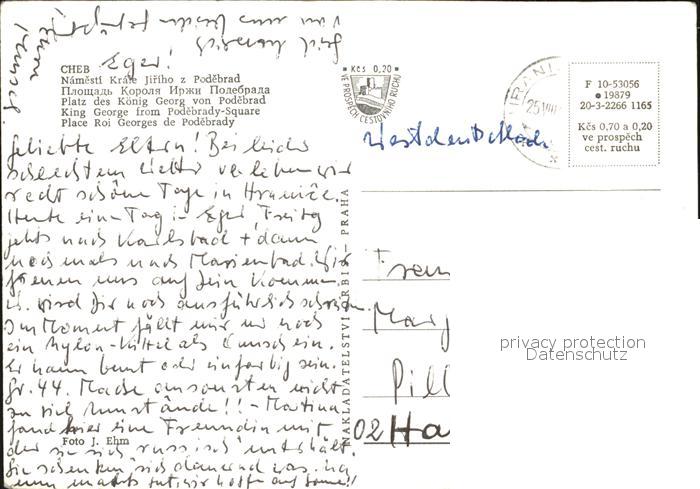 CHEB Eger!
Náměstí Krále Jiřího z Poděbrad
Площадь Короля Иржи Подебрада
Platz des König Georg von Poděbrad
King George from Poděbrady-Square
Place Roi Georges de Poděbrady
Geliebte Eltern! Bei leider
schlechtem Wetter verleben wir
recht schöne Tage in Hranice.
Heute ein Tag in Eger, Freitag
gehts nach Karlsbad + dann
nochmals nach Marienbad. Wir
freuen uns auf Dein Kommen
wird Dir noch ausführlich schreiben.
Im Moment fällt mir nur noch
ein Nylon-Kittel als Wunsch ein.
Er kann bunt oder einfarbig sein.
Gr. 44. Mache ansonsten nicht
zu viel Umstände!! - Martina
fand hier eine Freundin mit
der sie sich "russisch" unterhält.
Sie schenken sich dauernd was. Na
Foto J. Ehm
NAKLADATELSTVÍ ORBIS — PRAHA
• Kčs 0,20 •
VE PROSPĚCH CESTOVNÍHO RUCHU
25.VIII
F 10-53056
• 19879
20-3-2266 1165
Kčs 0,70 a 0,20
ve prospěch
cest. ruchu
Westdeutschland
Marg
Pill
02 Ha
privacy protection
Datenschutz